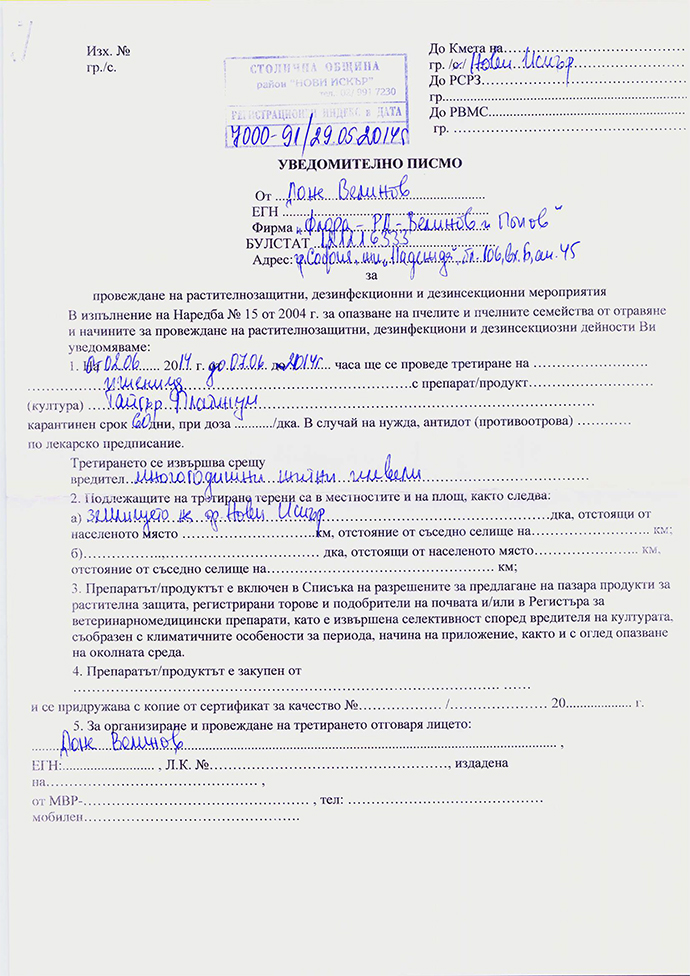 Изх. №
гр./с.
До Кмета на
гр. /с./ Нови Искър
До РСРЗ
гр.
До РВМС
гр.
СТОЛИЧНА ОБЩИНА
район "НОВИ ИСКЪР"
тел.: 02/991 7230
РЕГИСТРАЦИОНЕН ИНДЕКС и ДАТА
7000-91/29.05.2014г
УВЕДОМИТЕЛНО ПИСМО
От Доне Велинов
ЕГН
Фирма „Флора - РД - Велинов и Попов"
БУЛСТАТ
Адрес: гр. София, жк. „Надежда", бл. 106, вх. Б, ап. 45
за
провеждане на растителнозащитни, дезинфекционни и дезинсекционни мероприятия
В изпълнение на Наредба № 15 от 2004 г. за опазване на пчелите и пчелните семейства от отравяне
и начините за провеждане на растителнозащитни, дезинфекциони и дезинсекциозни дейности Ви
уведомяваме:
1. На От 02.06 2014 г. до 07.06. до 2014г. часа ще се проведе третиране на
пшеница с препарат/продукт
(култура) Тайгър Платинум
карантинен срок 60 дни, при доза /дка. В случай на нужда, антидот (противоотрова)
по лекарско предписание.
Третирането се извършва срещу
вредител многогодишни житни плевели
2. Подлежащите на третиране терени са в местностите и на площ, както следва:
а) землището на гр. Нови Искър дка, отстоящи от
населеното място км, отстояние от съседно селище на км;
б) дка, отстоящи от населеното място км,
отстояние от съседно селище на км;
3. Препаратът/продуктът е включен в Списъка на разрешените за предлагане на пазара продукти за
растителна защита, регистрирани торове и подобрители на почвата и/или в Регистъра за
ветеринарномедицински препарати, като е извършена селективност според вредителя на културата,
съобразен с климатичните особености за периода, начина на приложение, както и с оглед опазване
на околната среда.
4. Препаратът/продуктът е закупен от
и се придружава с копие от сертификат за качество № / 20 г.
5. За организиране и провеждане на третирането отговаря лицето:
Доне Велинов ,
ЕГН: , Л.К. № , издадена
на ,
от МВР- , тел:
мобилен